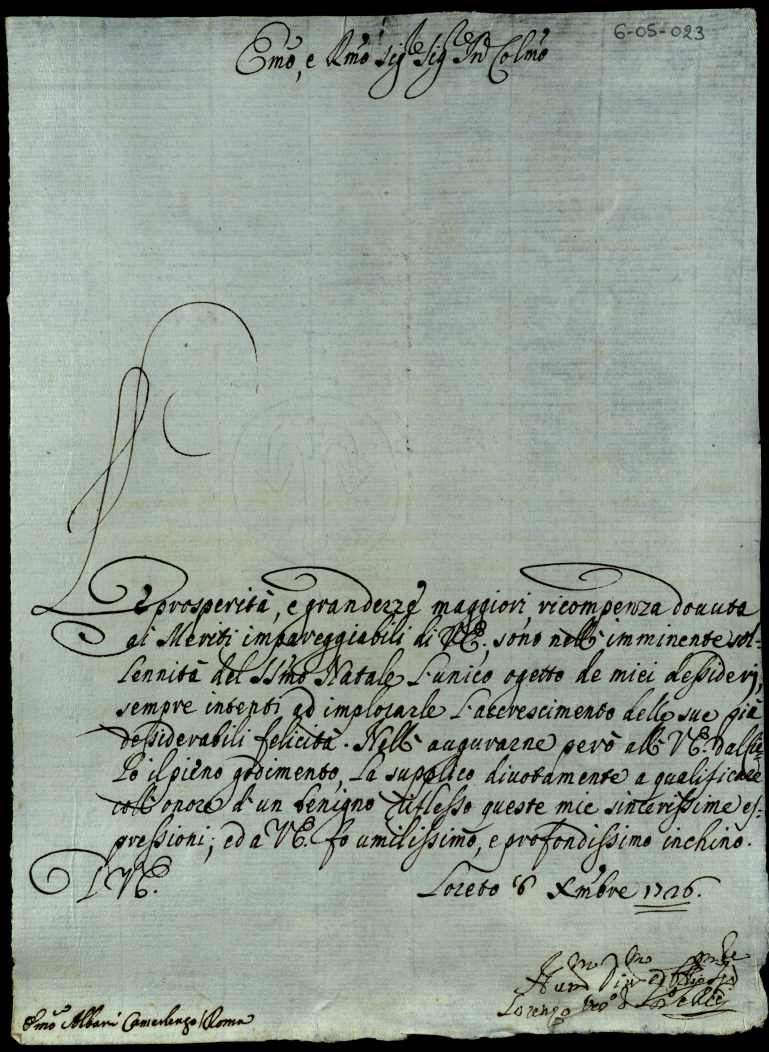 6-05-023
Emo, e Rmo Sigre Sigre Pne Colmo
Le prosperità, e grandezze maggiori, ricompenza douuta
ai Meriti impareggiabili di V.E., sono nell' imminente sol-
lennità del SSmo Natale l'unico ogetto de miei dessiderj,
sempre intenti ad implorarle l'accrescimento delle sue più
dessiderabili felicità. Nell' augurarne però all' V.E. dal Cie-
lo il pieno godimento, La supplico diuotamente a qualificare
coll' onore d'un benigno riflesso queste mie sincerissime es-
pressioni; ed a V.E. fo umilissimo, e profondissimo inchino.
D V.E.
Loreto 6 Xmbre 1726.
Lorenzo
Emo Albani Camerlengo / Roma